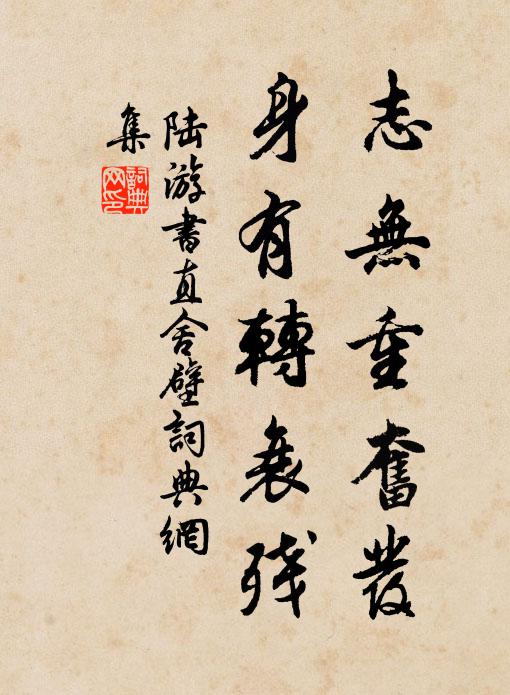 志無重奮發
身有轉衰殘
陸游書直舍壁詞典網
集
詞典網印